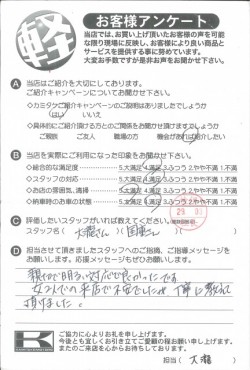 軽
お客様アンケート
当店では、お買い上げ頂いたお客様の声を可能
な限り現場に反映し、お客様により良い商品と
サービスを提供する事に努めています。
大変お手数ですが是非お声をお聞かせ下さい。
A 当店はご紹介を大切にしております。
ご紹介キャンペーンについてお聞かせ下さい。
◇カミタケご紹介キャンペーンのご説明はありましたでしょうか
はい いいえ
◇具体的にご紹介頂ける方とのご関係をお聞かせ下さい
ご親族 ご友人 職場の方 機会があればご紹介したい
B 当店を実際にご利用になった印象をお聞かせ下さい。
◇総合的な満足度 5.大満足 4.満足 3.ふつう 2.やや不満 1.不満
◇スタッフの対応 5.大満足 4.満足 3.ふつう 2.やや不満 1.不満
◇お店の雰囲気、清掃 5.大満足 4.満足 3.ふつう 2.やや不満 1.不満
◇納車時のお車の状態 5.大満足 4.満足 3.ふつう 2.やや不満 1.不満
C 評価したいスタッフがいれば教えてください。
スタッフ名（ 大瀧さん ）（ さん ）
D 担当させて頂きましたスタッフへのご指摘、ご指導メッセージを
お願いします。応援メッセージもお待ちしております。
親切で明るい対応で良かったです
女 での来店で不安でしたが 丁寧に教えて
頂けました。
K
ご協力に心よりお礼を申し上げます。
今後とも宜しくお引き立てご愛顧の程お願い申し上げます。
またのご来店を心からお待ちしております。
担当（ 大瀧 ）